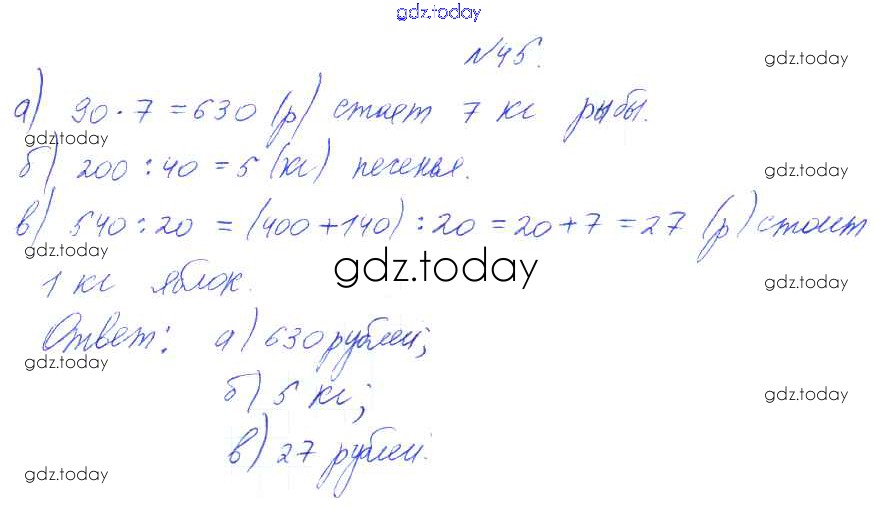 gdz.today
№45.
gdz.today
а) 90 · 7 = 630 (р) стоит 7 кг рыбы.
gdz.today
б) 200 : 40 = 5 (кг) печенья.
gdz.today
в) 540 : 20 = (400 + 140) : 20 = 20 + 7 = 27 (р) стоит
gdz.today
gdz.today
1 кг яблок.
gdz.today
Ответ: а) 630 рублей;
gdz.today
б) 5 кг;
gdz.today
в) 27 рублей.
gdz.today